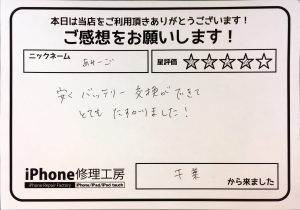 本日は当店をご利用頂きありがとうございます！
ご感想をお願いします！
ニックネーム
あーご
星評価
☆☆☆☆☆
安く バッテリー 交換ができて
とても たすかりました！
iPhone修理工房
iPhone Repair Factory iPhone/iPad/iPod touch
千葉
から来ました